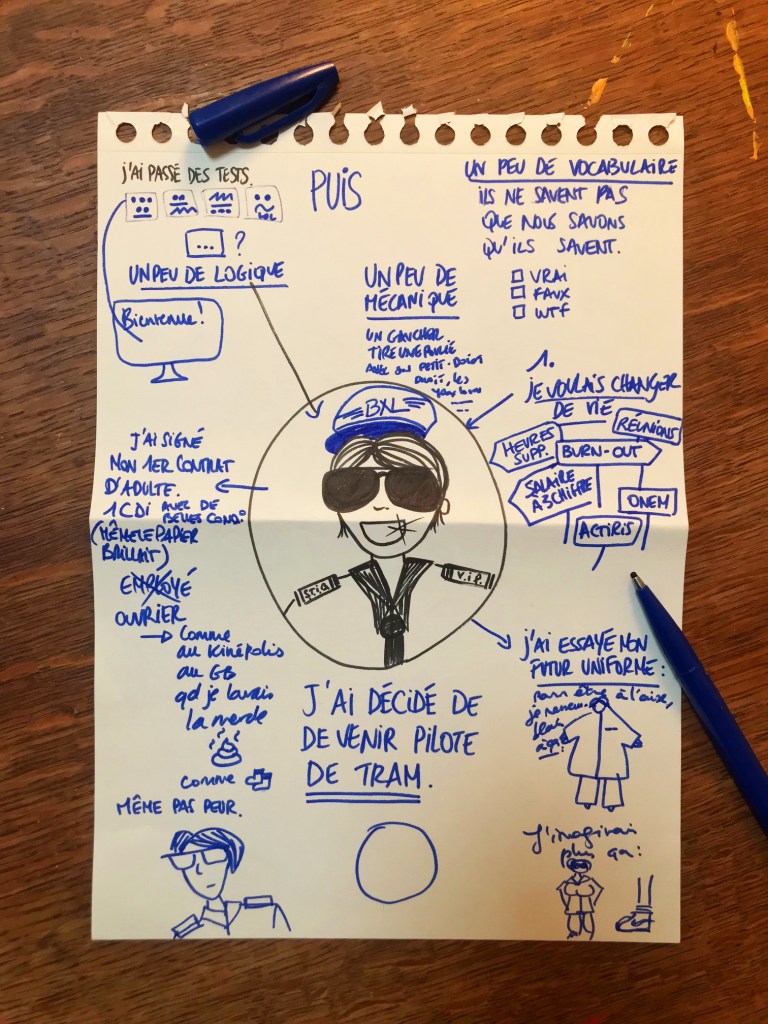 J'AI PASSÉ DES TESTS.
UN PEU DE LOGIQUE
...?
Bienvenue!
PUIS
UN PEU DE VOCABULAIRE
ILS NE SAVENT PAS
QUE NOUS SAVONS
QU'ILS SAVENT.
VRAI
FAUX
WTF
UN PEU DE
MÉCANIQUE
UN GAUCHER
TIRE UNE POULIE
AVEC SON PETIT-DOIGT
DROIT, LES
1.
JE VOULAIS CHANGER
DE VIE
HEURES
SUPP.
BURN-OUT
RÉUNIONS
SALAIRE
À 3 CHIFFRE
ONEM
ACTIRIS
BXL
STIB
V.I.P.
J'AI SIGNÉ
MON 1ER CONTRAT
D'ADULTE.
1 CDI AVEC DE
BELLES COND°
(MÊME LE PAPIER
BRILLAIT)
EMPLOYÉ
OUVRIER
comme
au Kinépolis
au GB
qd je lavais
la merde
comme
MÊME PAS PEUR.
J'AI DÉCIDÉ DE
DEVENIR PILOTE
DE TRAM.
J'AI ESSAYÉ MON
FUTUR UNIFORME:
pour être à l'aise,
J'imaginais
plus ça: